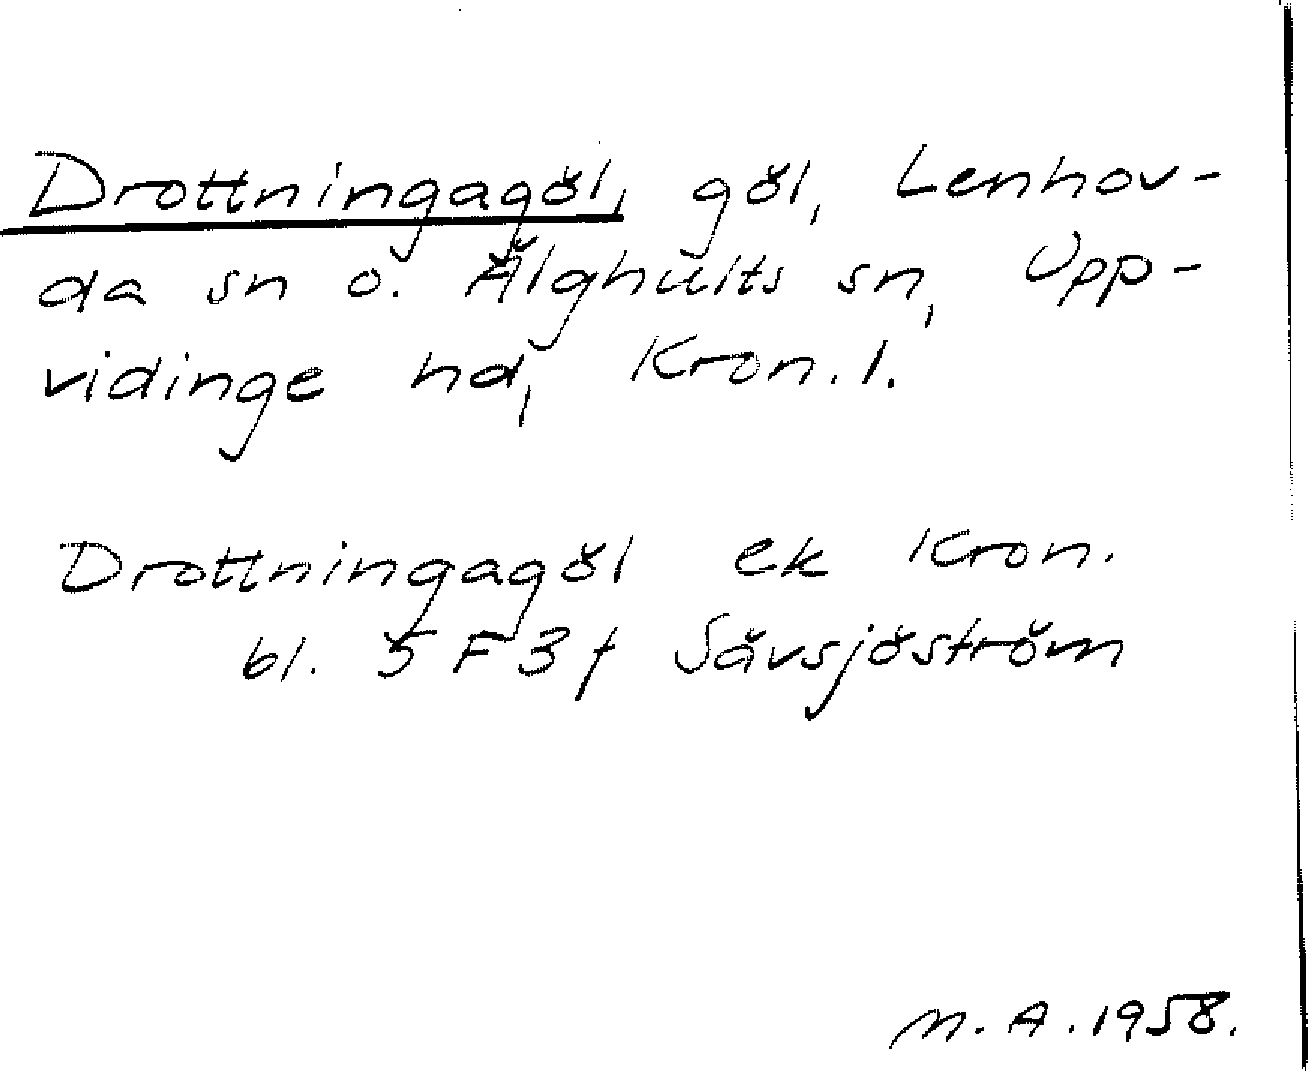 Drottningagöl, göl, Lenhov-
da sn o. Älghults sn, Upp-
vidinge hd, Kron. l.
Drottningagöl ek Kron.
bl. 5 F 3 f Sävsjöström
M. A. 1958.